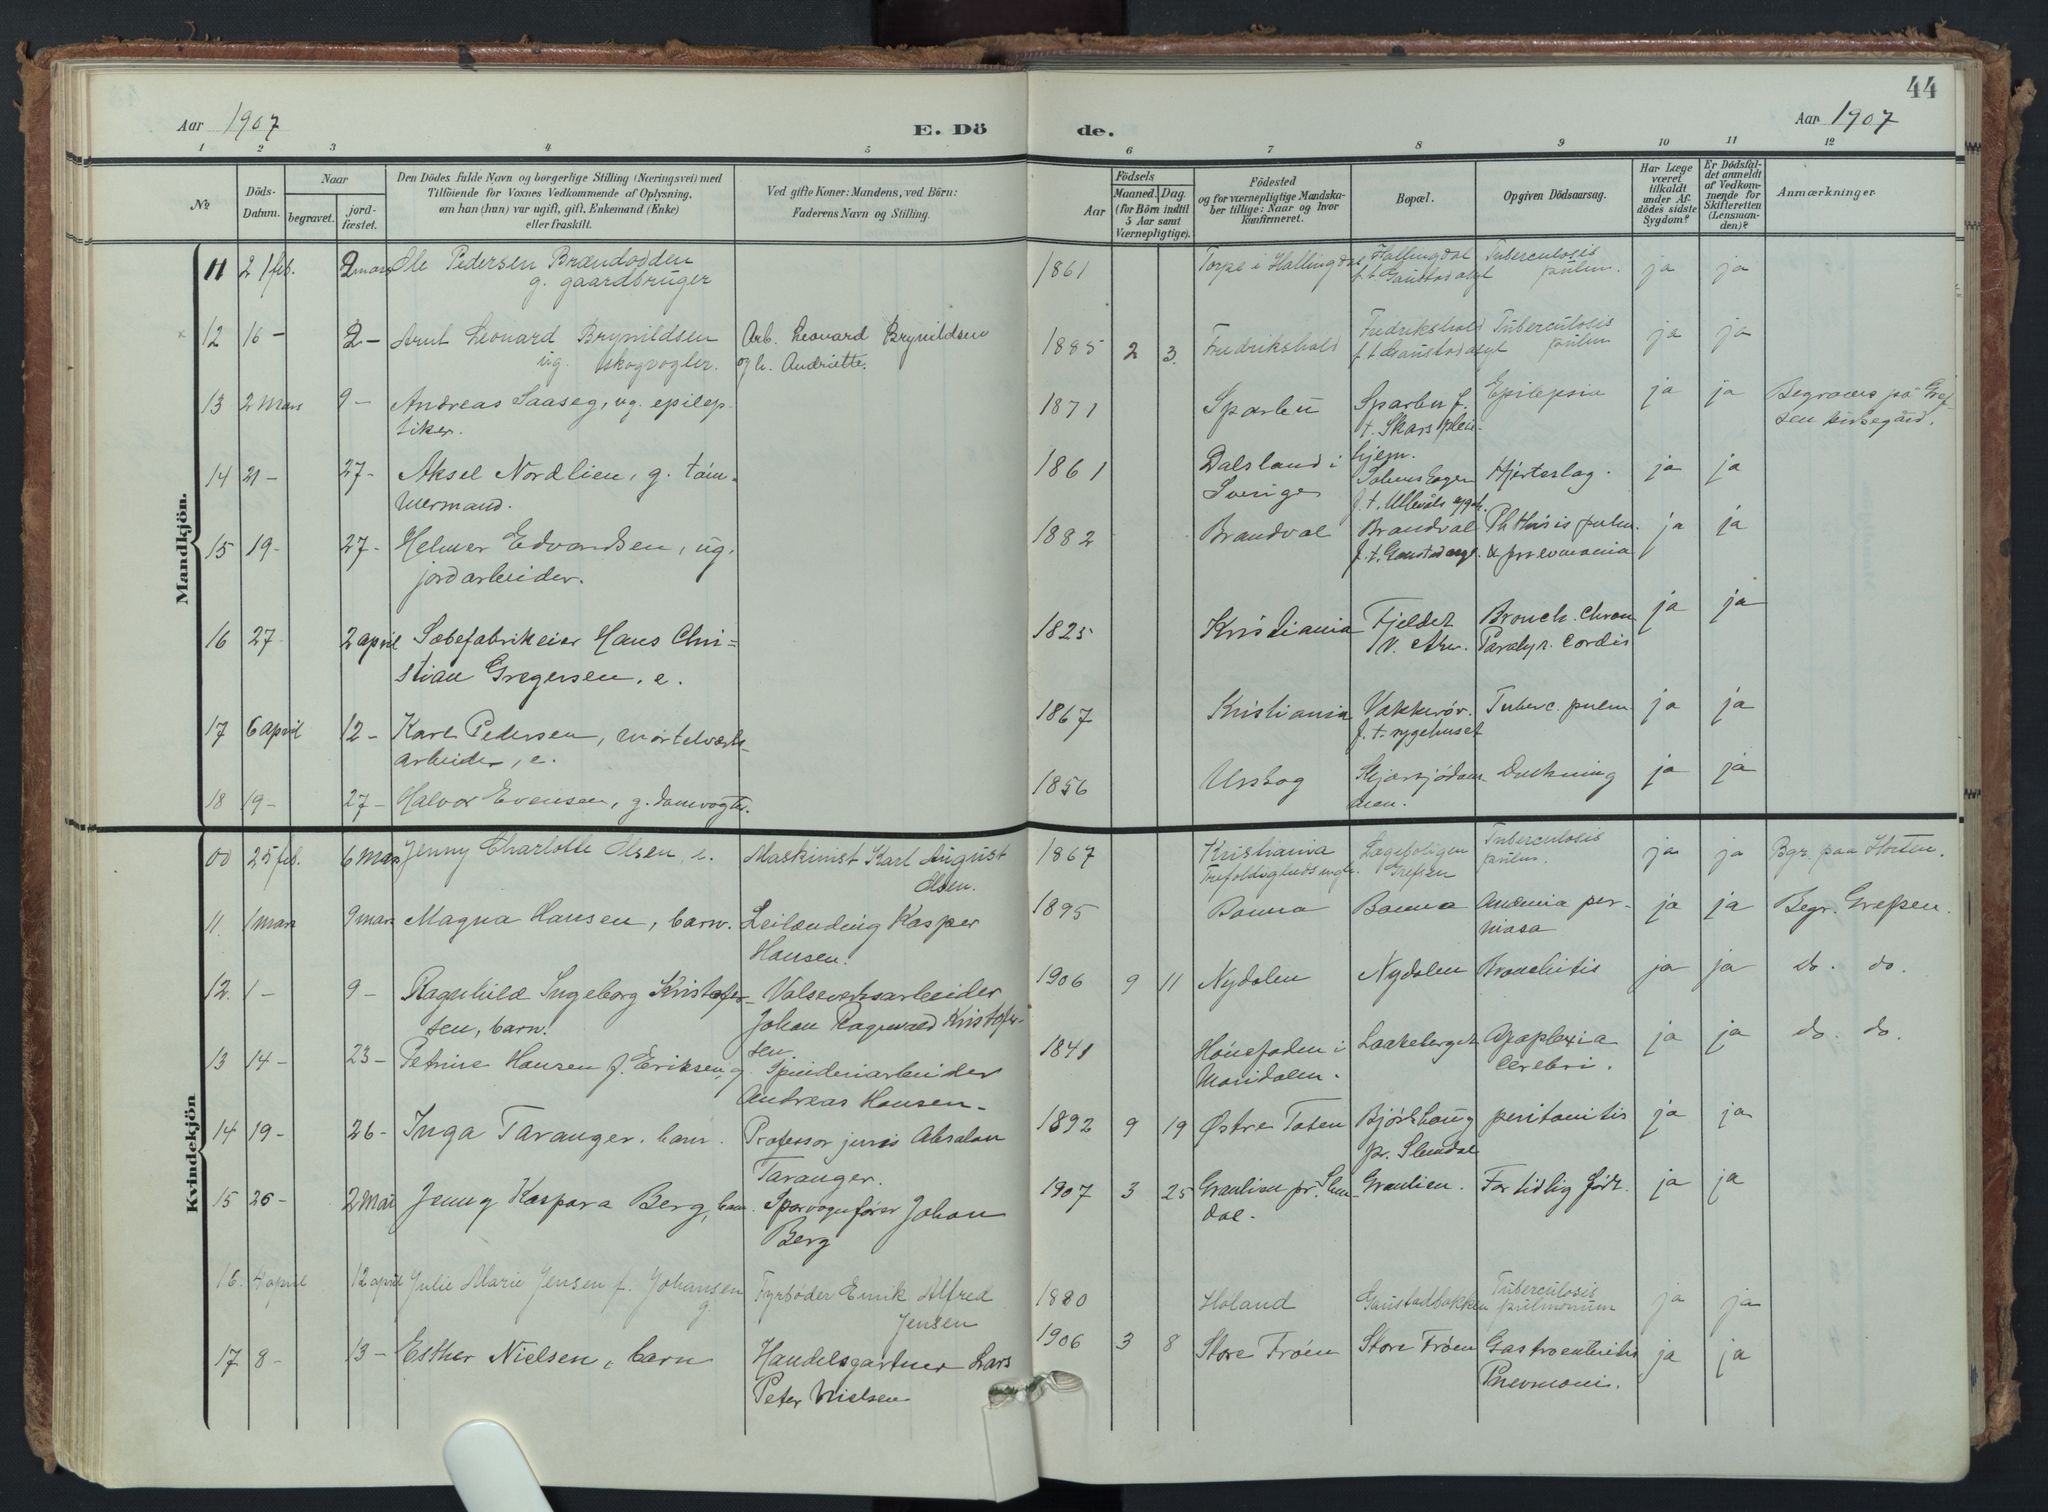 44
Aar 1907
E. Dö
de.
Aar 1907
1 2 3 4 5 6 7 8 9 10 11 12
№
Döds-
Datum.
Naar
begravet.
jord-
fæstet.
Den Dödes fulde Navn og borgerlige Stilling (Næringsvei) med
Tilföiende for Voxnes Vedkommende af Oplysning,
om han (hun) var ugift, gift, Enkemand (Enke)
eller fraskilt.
Ved gifte Koner: Mandens, ved Börn:
Faderens Navn og Stilling.
Födsels
Aar
Maaned. Dag.
(for Börn indtil
5 Aar samt
Værnepligtige).
Födested
og for værnepligtige Mandska-
ber tillige: Naar og hvor
konfirmeret.
Bopæl.
Opgiven Dödsaarsag.
Har Læge
været
tilkaldt
under Af-
dödes sidste
Sygdom?
Er Dödsfal-
det anmeldt
af Vedkom-
mende for
Skifteretten
(Lensman-
den)?
Anmærkninger
Mandkjön.
11 21 feb. 2 mars Ole Pedersen Brændodden 1861 Torpe i Hallingdal Hallingdal Tuberculosis ja ja
g. gaardbruger f. t. Gaustad asyl pulm.
12 16 - 2 - Arnt Leonard Brynildsen Arb. Leonard Brynildsen 1885 2 3 Fredrikshald Fredrikshald Tuberculosis ja ja
ug. skogvogter. og h. Andriette. f. t. Gaustad asyl pulm
13 2 mars 9 - Andreas Saaseg, ug. epilep- 1871 Sparbu Sparbu f. Epilepsia ja ja Begraves på Gref-
tiker. t. Skars pleie- sen kirkegård.
hjem.
14 21 - 27 - Aksel Nordlien, g. töm- 1861 Dalsland i Hjerteslag. ja ja
mermand. Sverige f. t. Ullevåls sygeh.
15 19 - 27 - Helmer Edvardsen, ug. 1882 Brandval Brandval Phthisis pulm. ja ja
jordarbeider. f. t. Gaustad asyl. & pneumonia
16 27 - 2 april Sæbefabrikeier Hans Chri- 1825 Kristiania Fjeldet Bronch. chron ja ja
stian Gregersen, e. V. Aker. Paralys. cordis
17 6 april 12 - Karl Pedersen, mörtelværks- 1867 Kristiania Vækkerøv. Tuberc. pulm ja ja
arbeider, e. f. t. sygehuset
18 19 - 27 - Halvor Evensen, g. damvogter. 1856 Urskog Skjærsjödam- Drukning ja ja
men.
Kvindekjön
25 feb. 6 mars Jenny Charlotte Olsen, e. Maskinist Karl August 1867 Kristiania Lægeboligen Tuberculosis ja ja Bgr. paa Horten.
Olsen. Trefoldigheds mgh. Grefsen pulm.
11. 1 mars 9 mars Magna Hansen, barn. Leilænding Kasper 1895 Banna Banna Anæmia per- ja ja Begr. Grefsen.
Hansen. niosa
12. 1 - 9 - Ragnhild Ingeborg Kristofer- Valseverksarbeider 1906 9 11 Nydalen Nydalen Bronchitis ja ja do. do.
sen, barn. Johan Ragnvald Kristofer-
sen
13 14 - 23 - Petrine Hansen f. Eriksen, g. Spinderiarbeider 1841 Hönefoden i Laakeberget Apoplexia ja ja do. do.
Andreas Hansen - Maridalen. cerebri.
14 19 - 26 - Inga Taranger, barn. Professor juris Absalon 1892 9 19 Østre Toten Bjørkhaug peritonitis ja ja
Taranger. pr. Slemdal
15 26 - 2 Mai Jenny Kaspara Berg, barn. Sporvognfører Johan 1907 3 25 Granlien pr. Slem- Granlien. For tidlig født. ja ja
Berg dal.
16. 4 april 12 april Julie Marie Jensen f. Johansen Fyrbøder Emik Alfred 1880 Høland Gaustadbakken Tuberculosis ja ja
g. Jensen pulmonum
17 8 - 13 - Esther Nielsen, barn Handelsgartner Lars 1906 3 8 Store Frøen Store Frøen Gastroenteritis ja ja
Peter Nielsen Pneumoni.